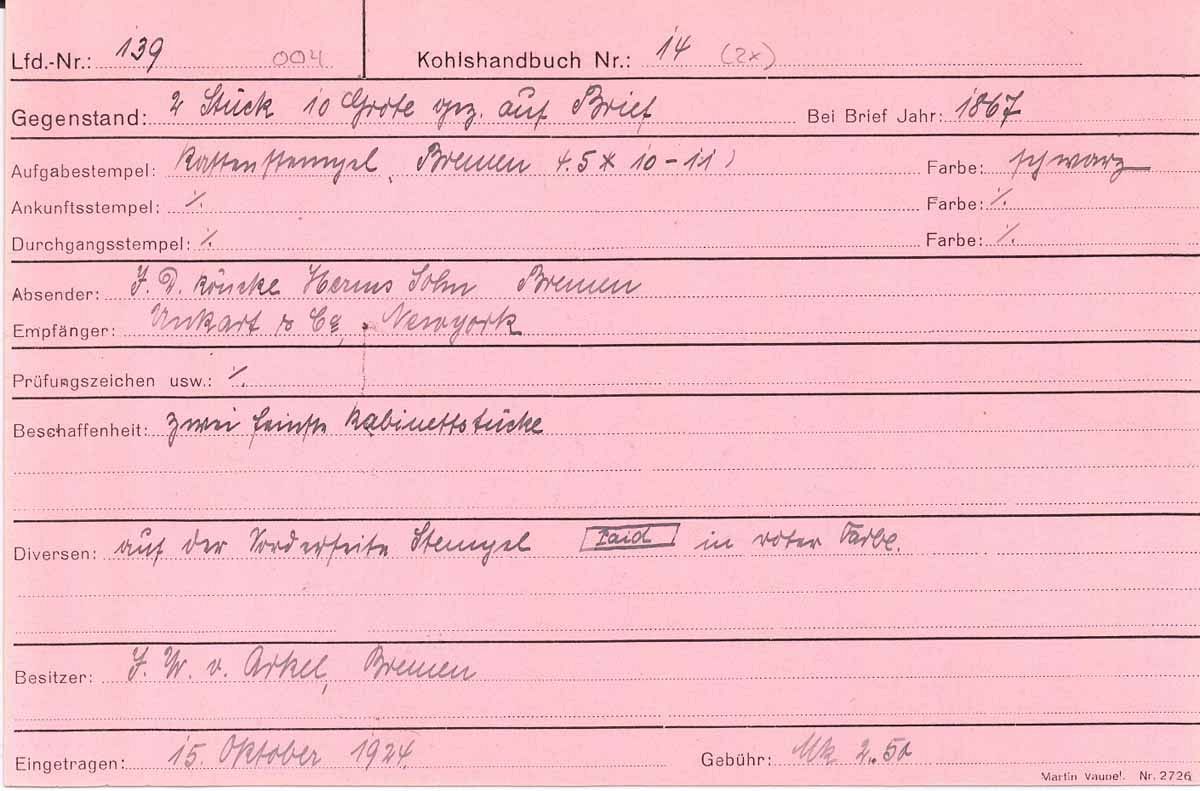 Lfd.-Nr.: 139 004 Kohlshandbuch Nr.: 14 (2x)
Gegenstand: 2 Stück 10 Grote gez. auf Brief Bei Brief Jahr: 1867
Aufgabestempel: Kastenstempel, Bremen 4.5 * 10-11) Farbe: schwarz
Ankunftsstempel: ·/. Farbe: ·/.
Durchgangsstempel: ·/. Farbe: ·/.
Absender: J. D. Köncke Herms Sohn Bremen
Empfänger: Unkart & Co, Newyork
Prüfungszeichen usw.: ·/.
Beschaffenheit: zwei feinste Kabinettstücke
Diversen: auf der Vorderseite Stempel Paid in roter Farbe.
Besitzer: J. W. v. Arkel, Bremen
Eingetragen: 15. Oktober 1924 Gebühr: Mk 2.50
Martin Vaupel. Nr. 2726